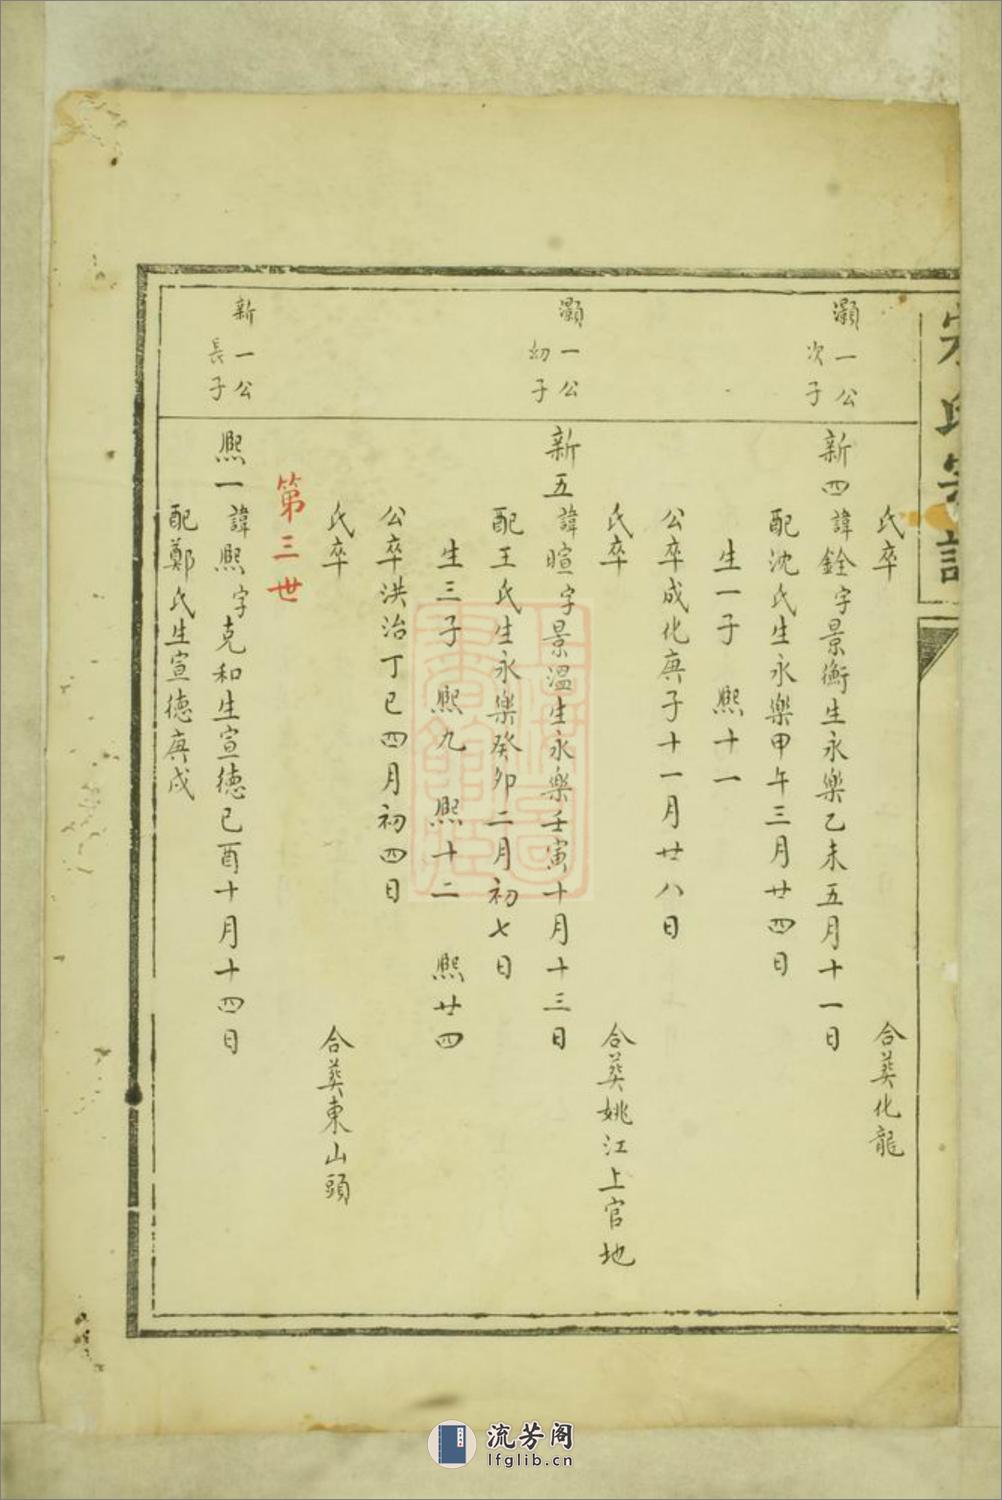 宋氏宗譜
氏卒 合葬化龍
灝一公
次子
新四諱銓字景衡生永樂乙未五月十一日
配沈氏生永樂甲午三月廿四日
生一子 熙十一
公卒成化庚子十一月廿八日
氏卒 合葬姚江上官地
灝一公
幼子
新五諱暄字景溫生永樂壬寅十月十三日
配王氏生永樂癸卯二月初七日
生三子 熙九 熙十二 熙廿四
公卒洪治丁巳四月初四日
氏卒 合葬東山頭
第三世
新一公
長子
熙一諱熙字克和生宣德己酉十月十四日
配鄭氏生宣德庚戌
流芳阁
lfglib.cn